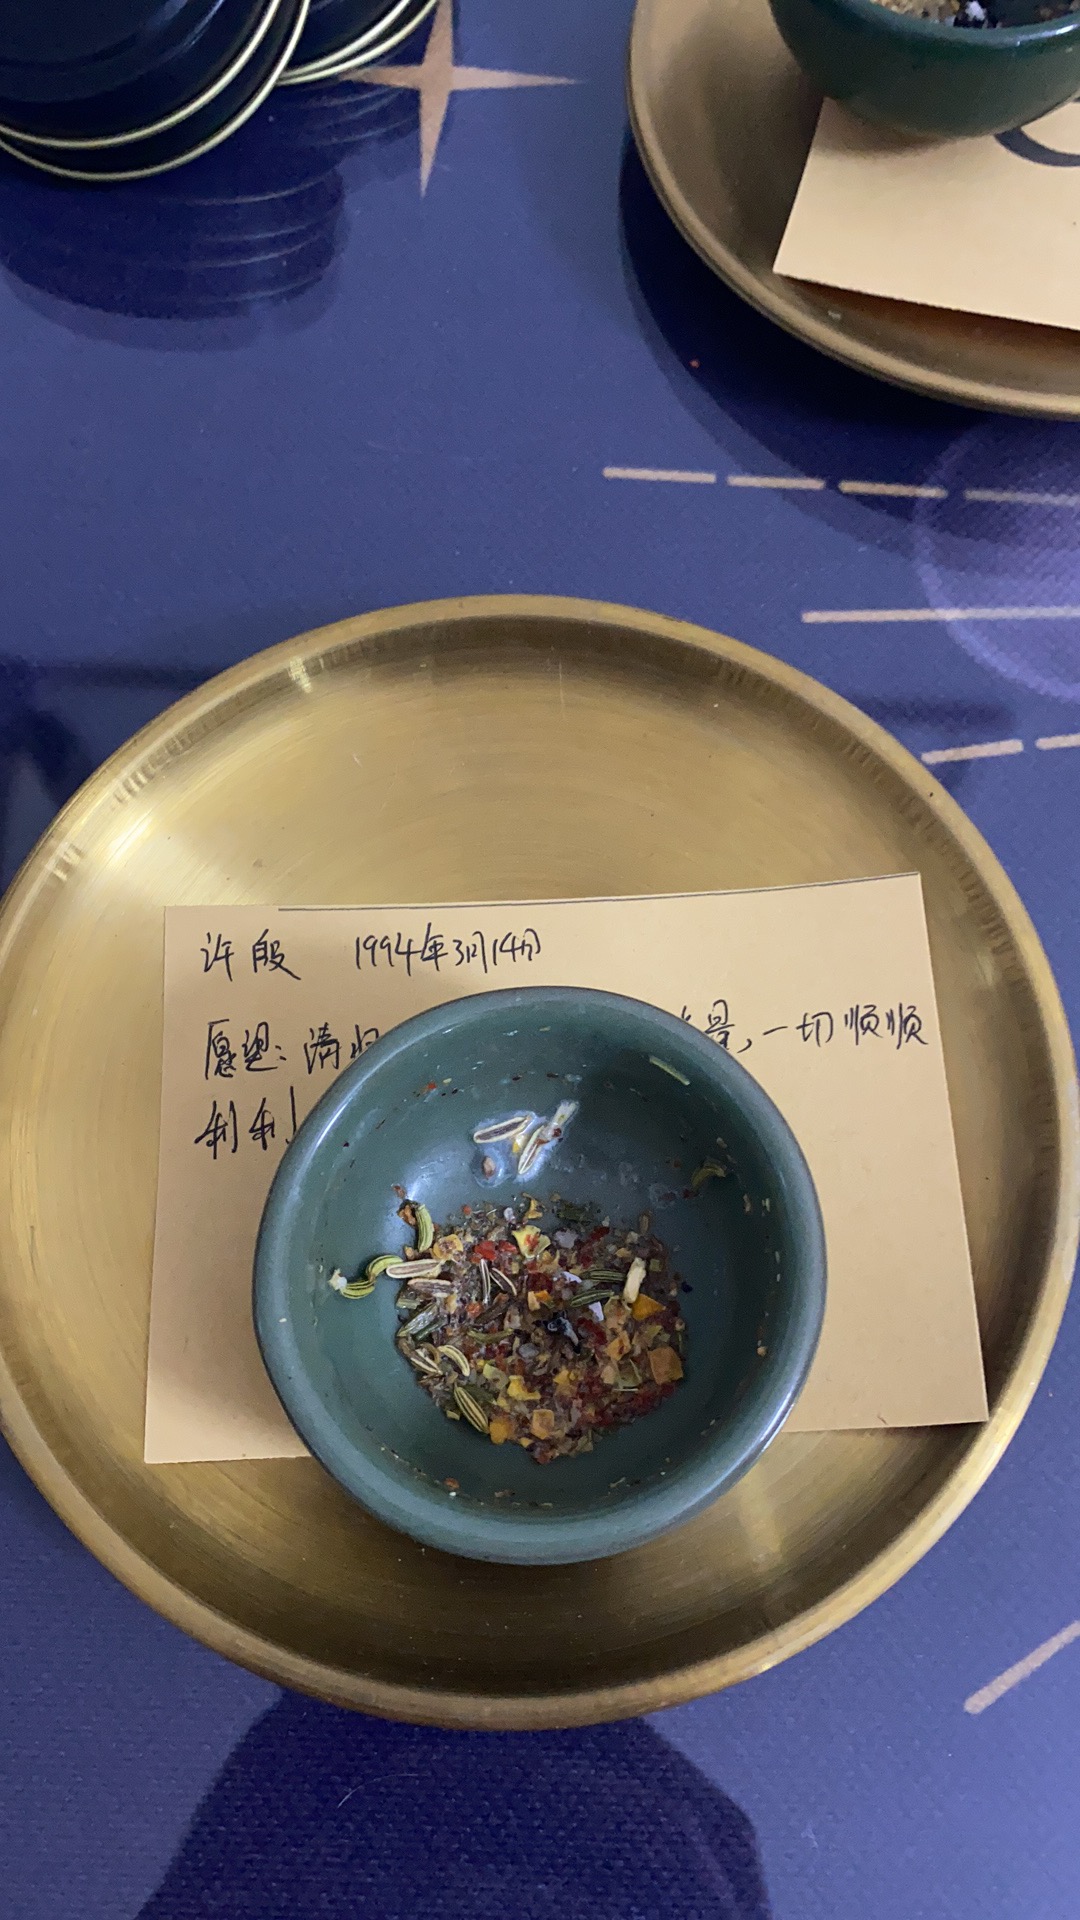 许殷 1994年3月14日
愿望：清 ，一切顺顺
利利！